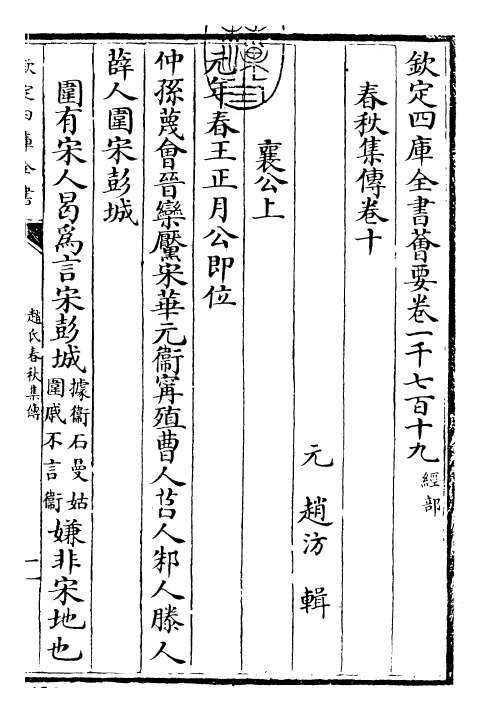 欽定四庫全書薈要卷一千七百十九經部
春秋集傳卷十
元趙汸輯
襄公上
元年春王正月公即位
仲孫蔑會晉欒黶宋華元衞甯殖曹人莒人邾人滕人
薛人圍宋彭城
圍有宋人曷爲言宋彭城據衞石曼姑圍戚不言衞嫌非宋地也
欽定四庫全書
趙氏春秋集傳
一